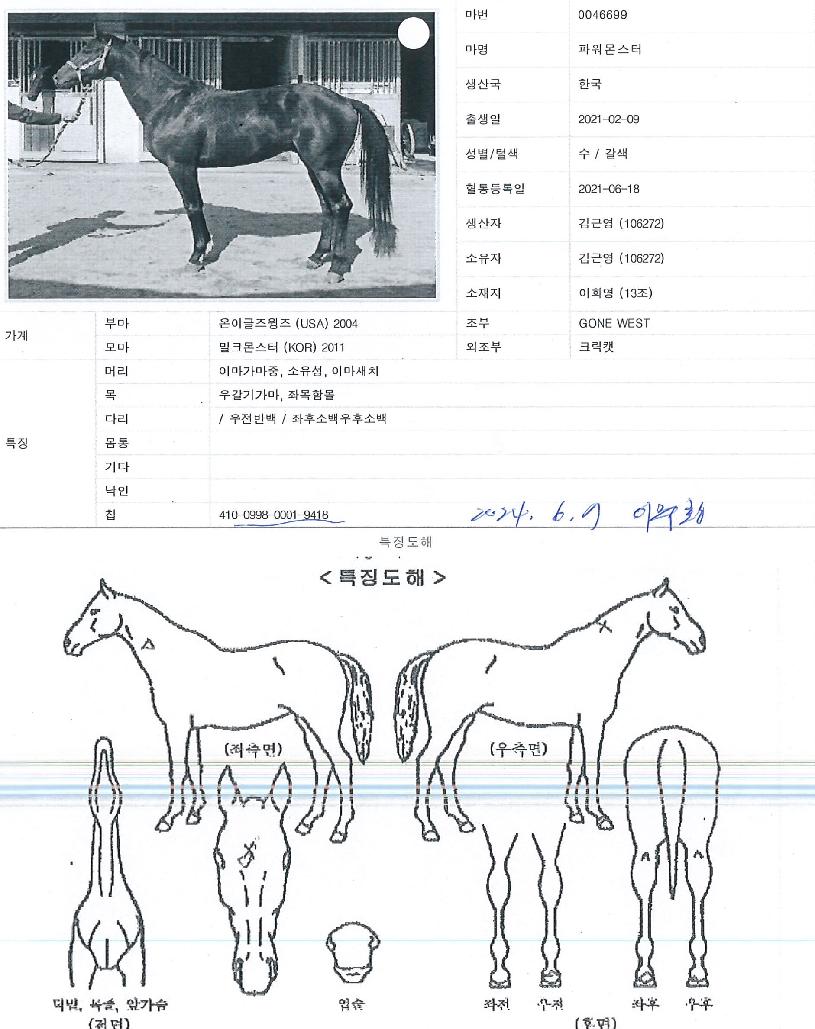 마번 0046699
마명 파워몬스터
생산국 한국
출생일 2021-02-09
성별/털색 수 / 갈색
혈통등록일 2021-06-18
생산자 김근영 (106272)
소유자 김근영 (106272)
소재지 이희영 (13조)
가계
부마 온이글즈윙즈 (USA) 2004 조부 GONE WEST
모마 밀크몬스터 (KOR) 2011 외조부 크릭캣
특징
머리 이마가마중, 소유성, 이마새치
목 우갈기가마, 좌목함몰
다리 / 우전반백 / 좌후소백우후소백
몸통
기타
낙인
칩 410-0998-0001-9418 2024. 6. 9
특징도해
<특징도해>
(좌측면) (우측면)
턱밑, 목줄, 앞가슴 입술 좌전 우전 좌후 우후
(전면) (후면)